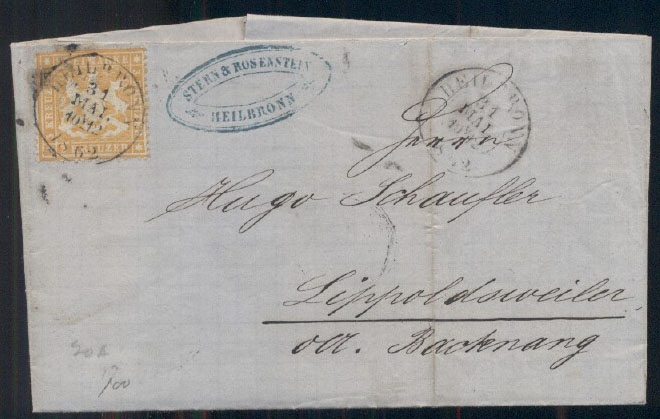 HEILBRONN
31
MAI
62
STERN & ROSENSTEIN
HEILBRONN
HEILBRONN
31
MAI
Herrn
Hugo Schaufler
Lippoldsweiler
OA. Backnang